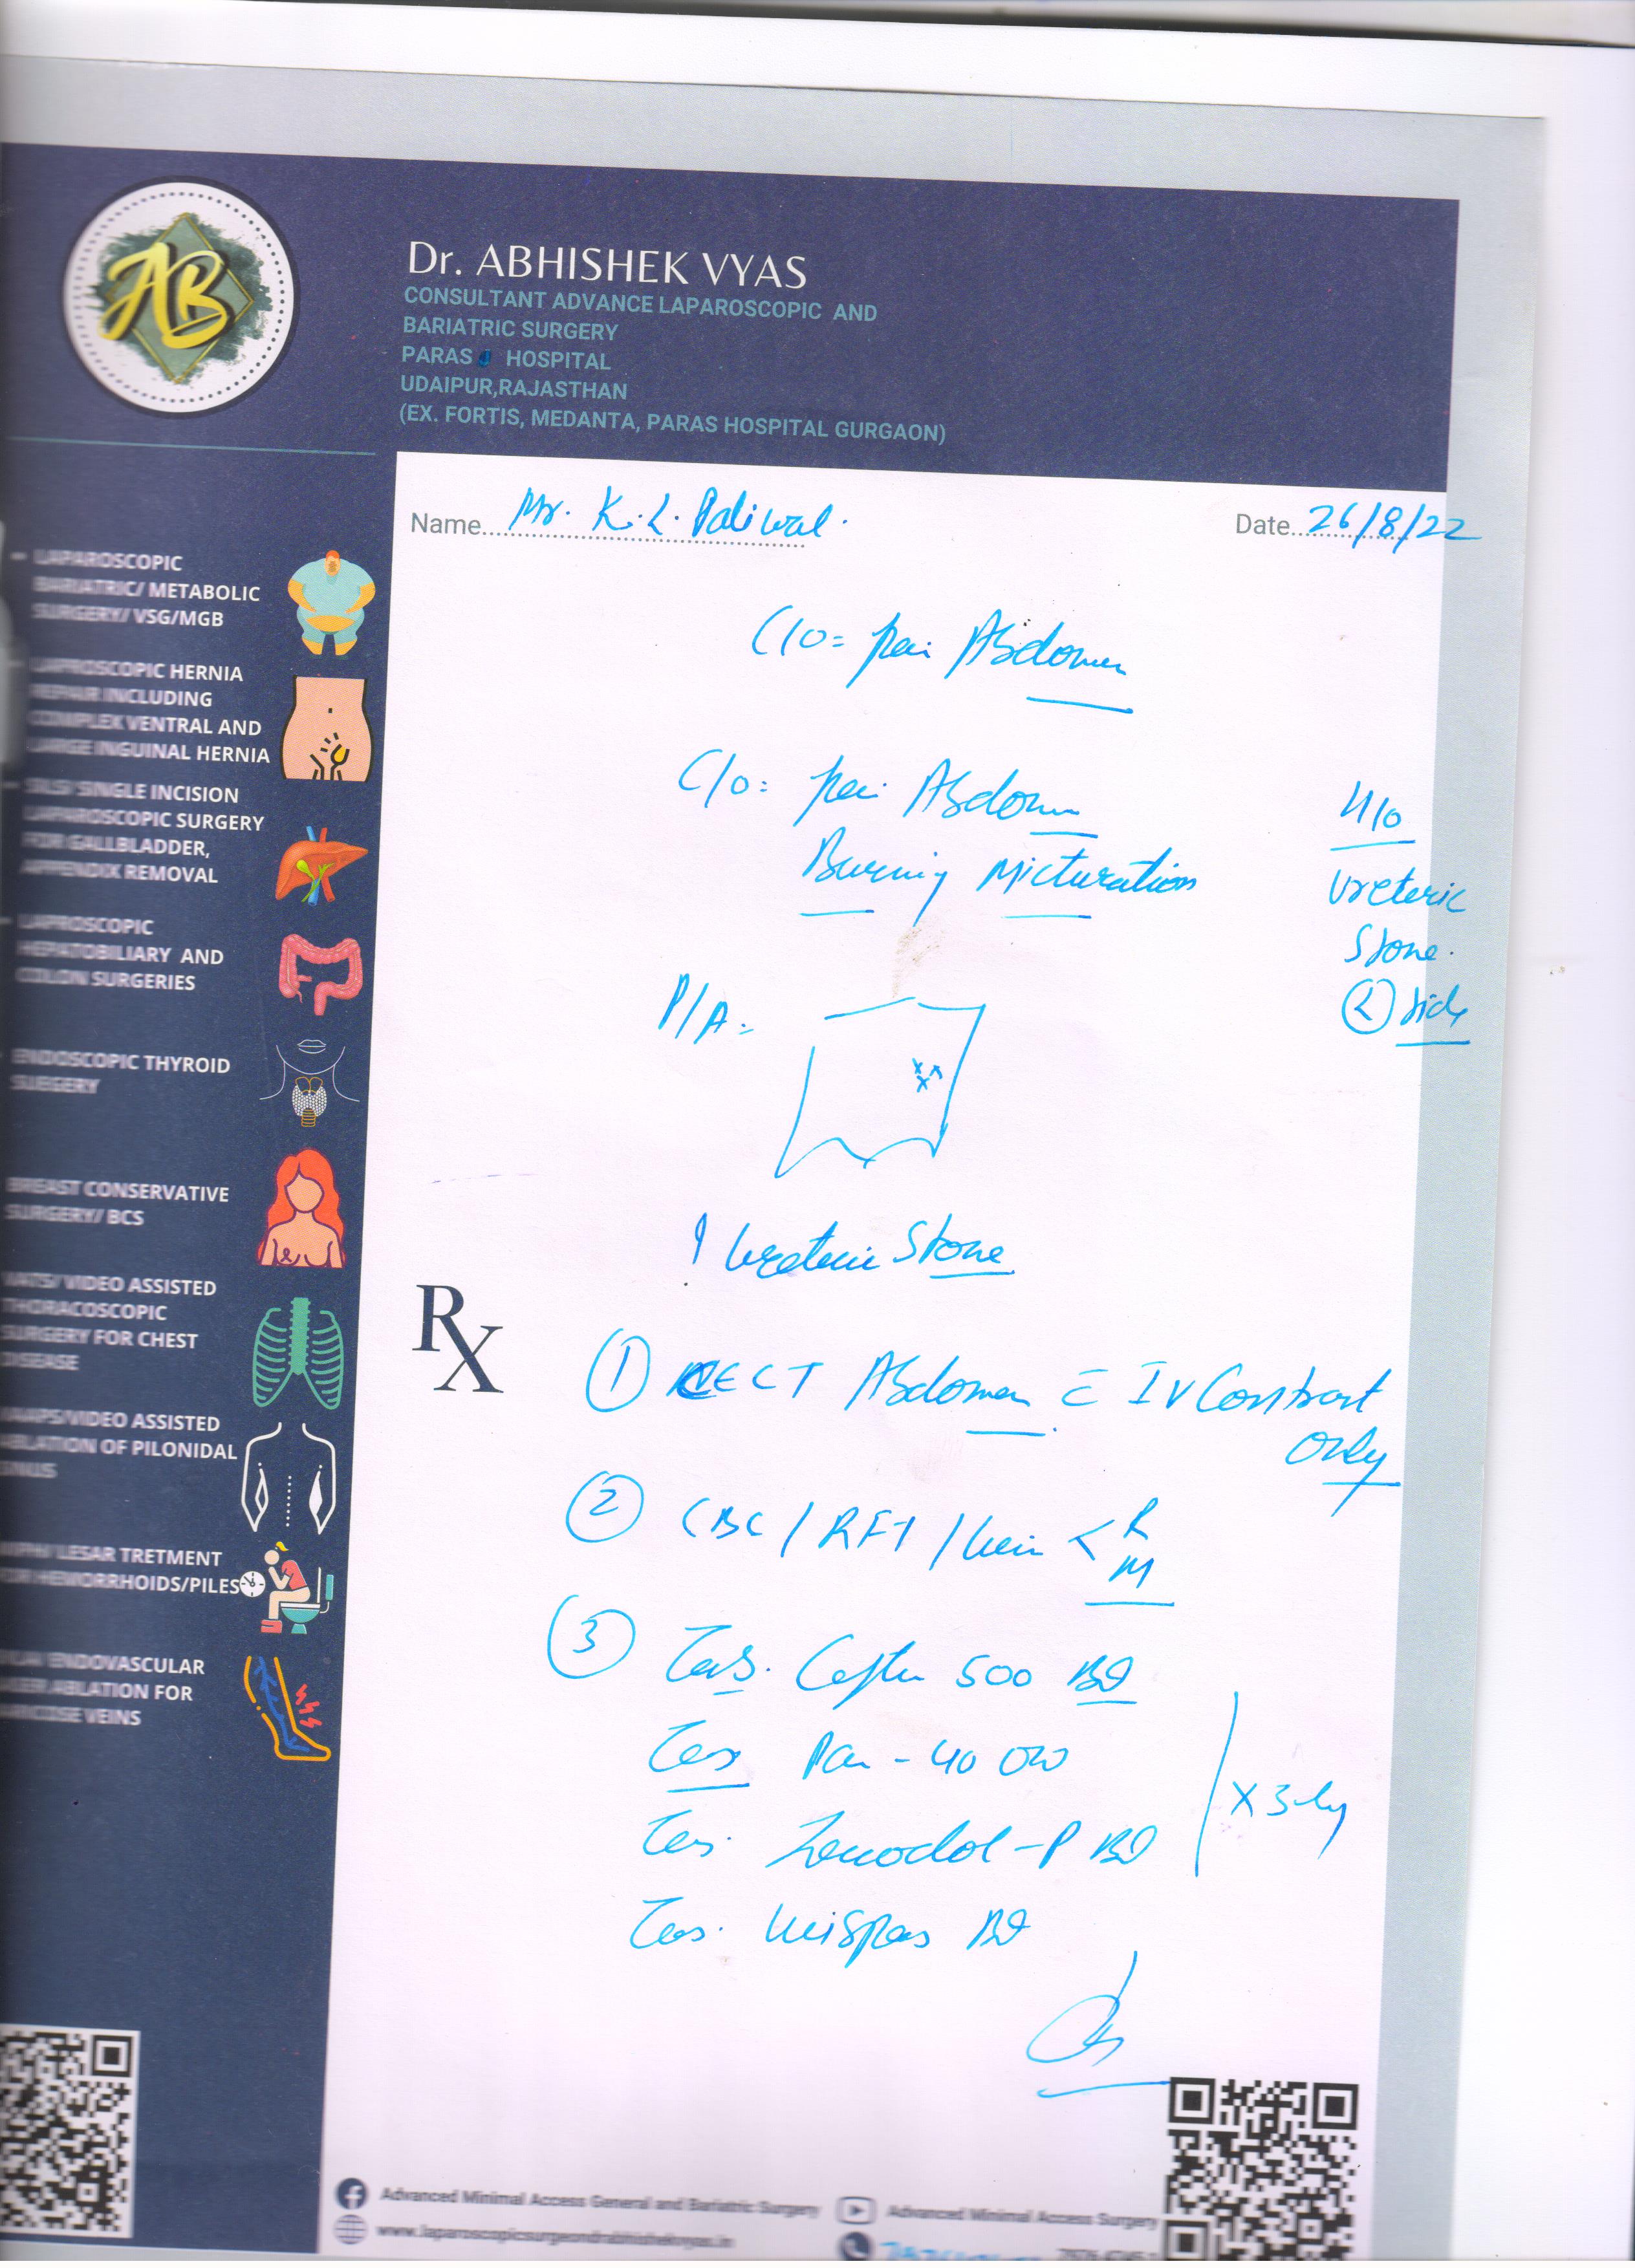 AB
Dr. ABHISHEK VYAS
CONSULTANT ADVANCE LAPAROSCOPIC AND
BARIATRIC SURGERY
PARAS HOSPITAL
UDAIPUR,RAJASTHAN
(EX. FORTIS, MEDANTA, PARAS HOSPITAL GURGAON)
Name Mr. K.L. Paliwal. Date 26/8/22
LAPAROSCOPIC
BARIATRIC/ METABOLIC
SURGERY/ VSG/MGB
LAPROSCOPIC HERNIA
REPAIR INCLUDING
COMPLEX VENTRAL AND
LARGE INGUINAL HERNIA
SILS/ SINGLE INCISION
LAPAROSCOPIC SURGERY
FOR GALLBLADDER,
APPENDIX REMOVAL
LAPROSCOPIC
HEPATOBILIARY AND
COLON SURGERIES
ENDOSCOPIC THYROID
SURGERY
BREAST CONSERVATIVE
SURGERY/ BCS
VATS/ VIDEO ASSISTED
THORACOSCOPIC
SURGERY FOR CHEST
DISEASE
VIDEO ASSISTED
ABLATION OF PILONIDAL
SINUS
LESAR TRETMENT
FOR HEMORRHOIDS/PILES
ENDOVASCULAR
LASER ABLATION FOR
VARICOSE VEINS
C/O= pain Abdomen
C/O: pain Abdomen
Burning Micturation
H/o
Ureteric
Stone.
(L) side
P/A=
? Ureteric Stone
Rx
① CECT Abdomen c̄ IV Contrast
only
② CBC / RFT / Urine < R
M
③ Tab. 500 BD
Tab Pan - 40 OD
Tab. Zenodol-P BD
Tab. Unispas BD
x 3 day
Advanced Minimal Access General and Bariatric Surgery
Advanced Minimal Access Surgery
www.laparoscopicsurgeondrabhishekvyas.in